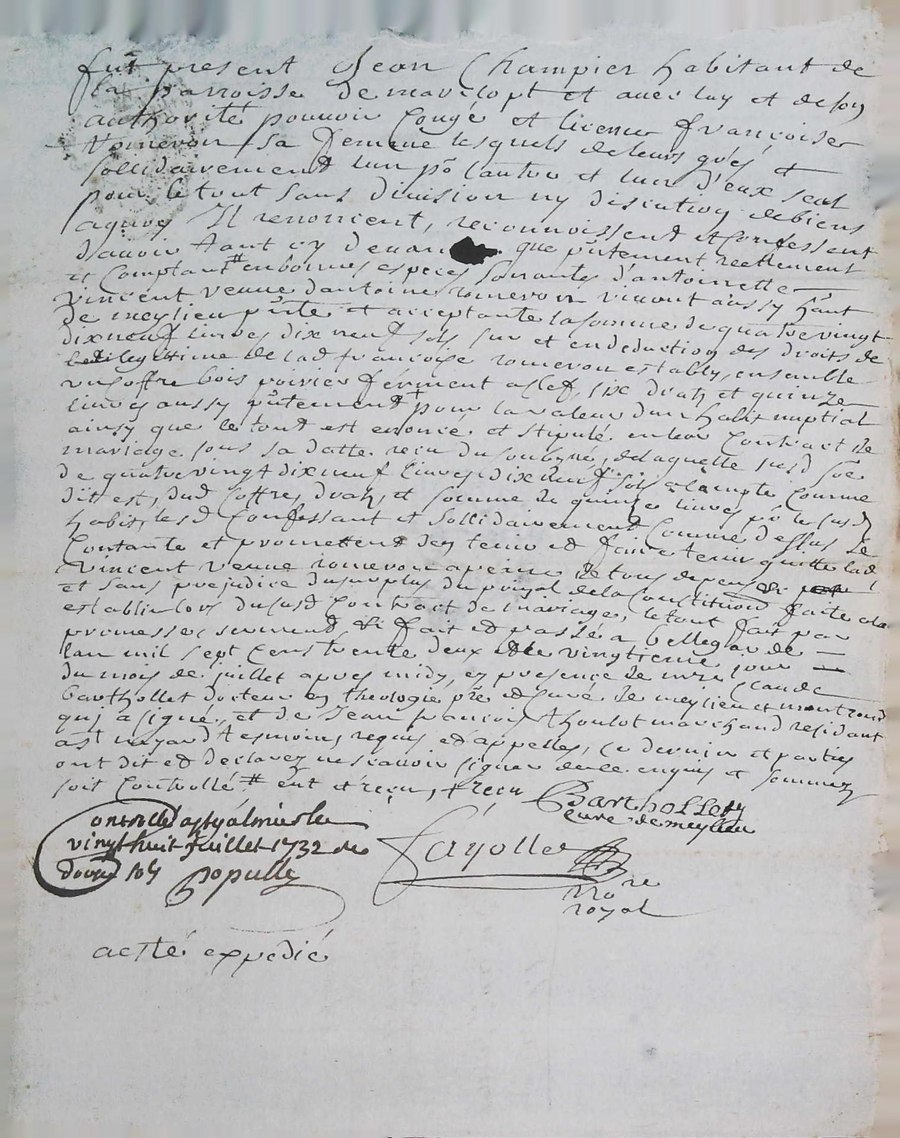 fut present Jean Champier habitant de
la parroisse de marclopt et avec luy et de son
authorité pouvoir Congé et licence francoise
Romeron sa femme lesquels de leurs grés et
sollidairement lun po lautre et lun d'eux seul
pour le tout sans division ny discution de biens
aquoy Il renoncent, reconnoissent et Confessent
davoir tant cy devant que putement reellement
et Comptant # en bonnes especes sonantes d'antoinette
vincent veuve d'antoine romeron vivant aussy haut
de meylieu pnte et acceptante la somme de quatre vingt
dixneuf livres dix neuf sols, sur et en deduction des droits de
legitime de lad francoise romeron estably, ensemble
un coffre bois poirier fermant a clef, six drap et quinze
livres aussy putement + pour la valeur dun habit nuptial
ainsy que le tout est enoncé et stipulé en leur Contract de
mariage sous sa datte recu du soubsigné, de laquelle susd soe
de quatre vingt dixneuf livres dixneuf sols a compte Comme
dit est, dud coffre, drap, et somme de quinze livres po le susd
habit, lesd Confessant et sollidairement Comme dessus se
Contante et promettent den tenir et faire tenir quitte lad
vincent veuve romeron a peine de tous depens
et sans prejudice du surplus du prix de la Constitution faite a la
establie lors du susd Contract de mariage, le tout fait par
promesse, serment, &c fait et passé a bellegarde
lan mil sept Cens trente deux et le vingtieme jour
du mois de juillet apres midy, en presence de mre Claude
barthollet docteur en theologie ptre et Curé de meylieu et montrond
qui a signé, et de Jean francois thoulot marchand residant
a st tesmoins requis et appelles, ce dernier et parties
ont dit et declarez ne scavoir signer de ce enquis et sommez
soit Controllé # ent et reçu, + recu
Barthollet
Curé de meylieu
Controllé a st galmier le
vingt huit Juillet 1732 de
douze sols
Populle
fayolle
nore
royal
acté expedié